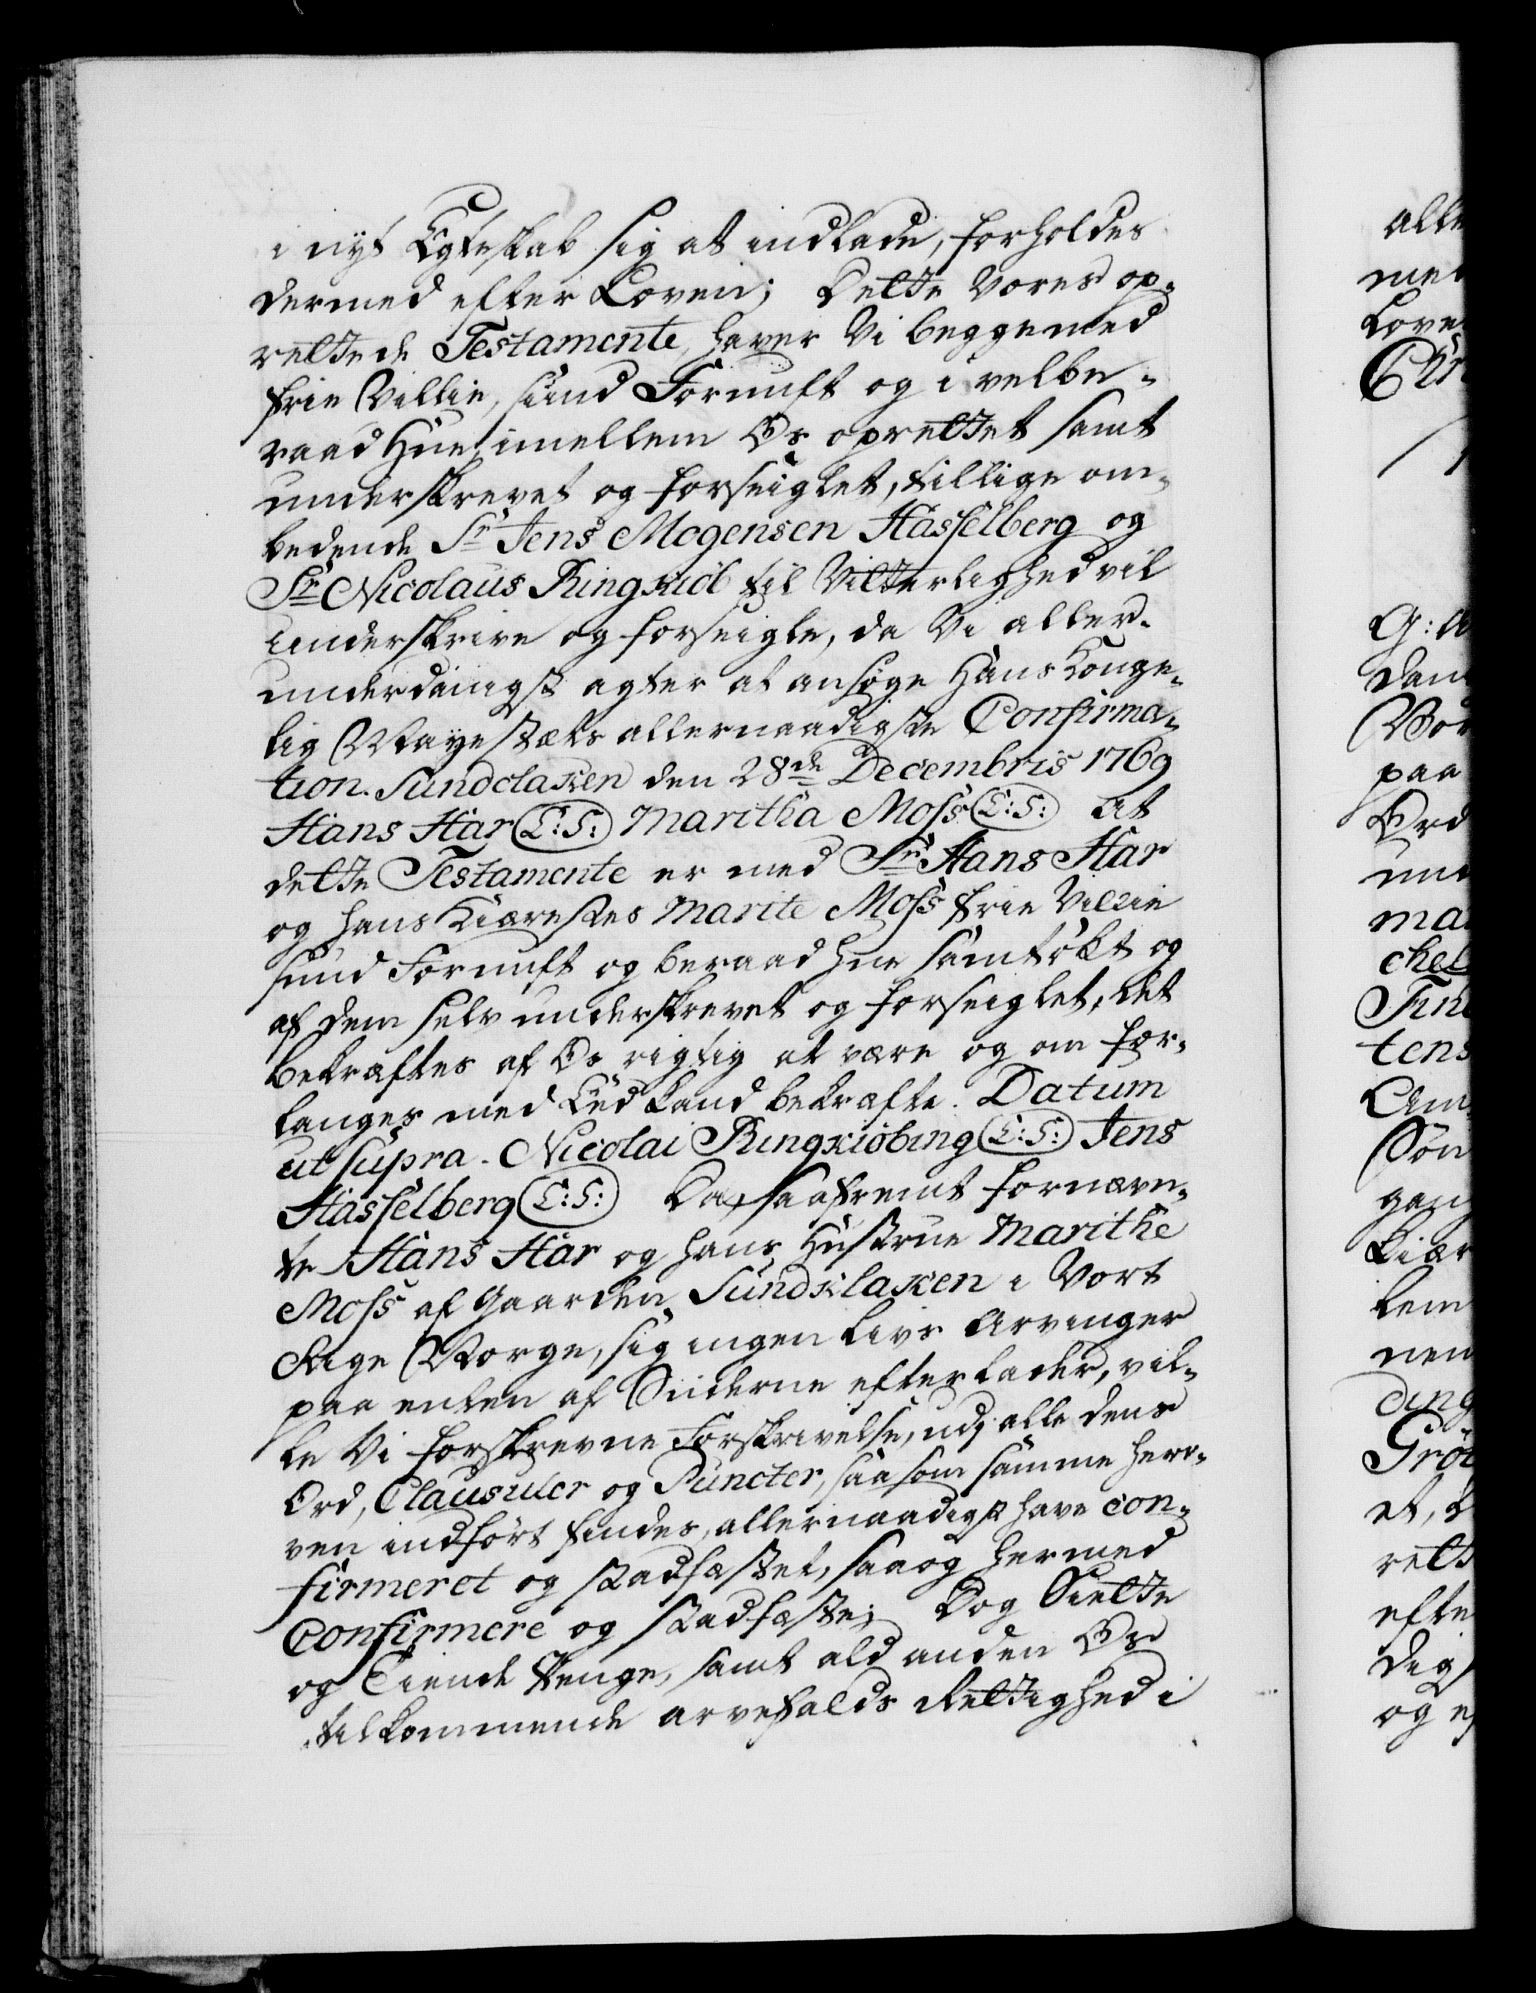 i nyt Egteskab sig at indlade, forholdes
dermed efter Loven; Dette Vores op-
rettede Testamente, haver Vi begge med
frie Villie, sund Fornuft og i velbe-
raad Hue, imellem Os oprettet samt
underskrevet og forseiglet, tillige om-
bedende Sr Jens Mogensen Hasselberg og
Sr Nicolaus Ringkiøb til Vitterlighed vil
underskrive og forseigle, da Vi aller-
underdanigst agter at ansøge Hans Konge-
lig Mayestæts allernaadigste Confirma-
tion. Sundclaken den 28de Decembris 1769
Hans Hår (L:S:) Maritha Moss (L:S:) At
dette Testamente er med Sr Hans Hår
og hans Kiærestes Marite Moss frie Villie
sund Fornuft og beraad Hue samtøkt og
af dem selv underskrevet og forseiglet, det
bekræftes af Os rigtig at være og om for-
langes med Eed kand bekræfte. Datum
ut supra. Nicolai Ringkiøbing (L:S:) Jens
Hasselberg (L:S:) Da, saafremt fornævn-
te Hans Hår og hans Hustrue Marithe
Moss af Gaarden Sundklaken i Vort
Rige Norge, sig ingen Livs Arvinger
paa enten af Siiderne efterlader, vil-
le Vi forskrevne Forskrivelse, udj alle dens
Ord, Clausuler og Puncter, saasom samme her o-
ven indført findes, allernaadigst have con-
firmeret og stadfæstet, saa og hermed
Confirmere og stadfæste; Dog Siette
og Tiende Penge, samt ald anden Os
tilkommende arvefalds Rettighed i